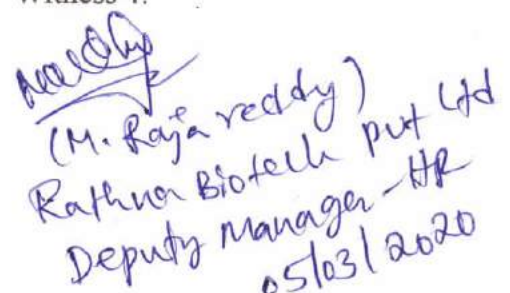 (M. Raja reddy)
Rathna Biotech pvt Ltd
Deputy Manager - HR
05/03/2020